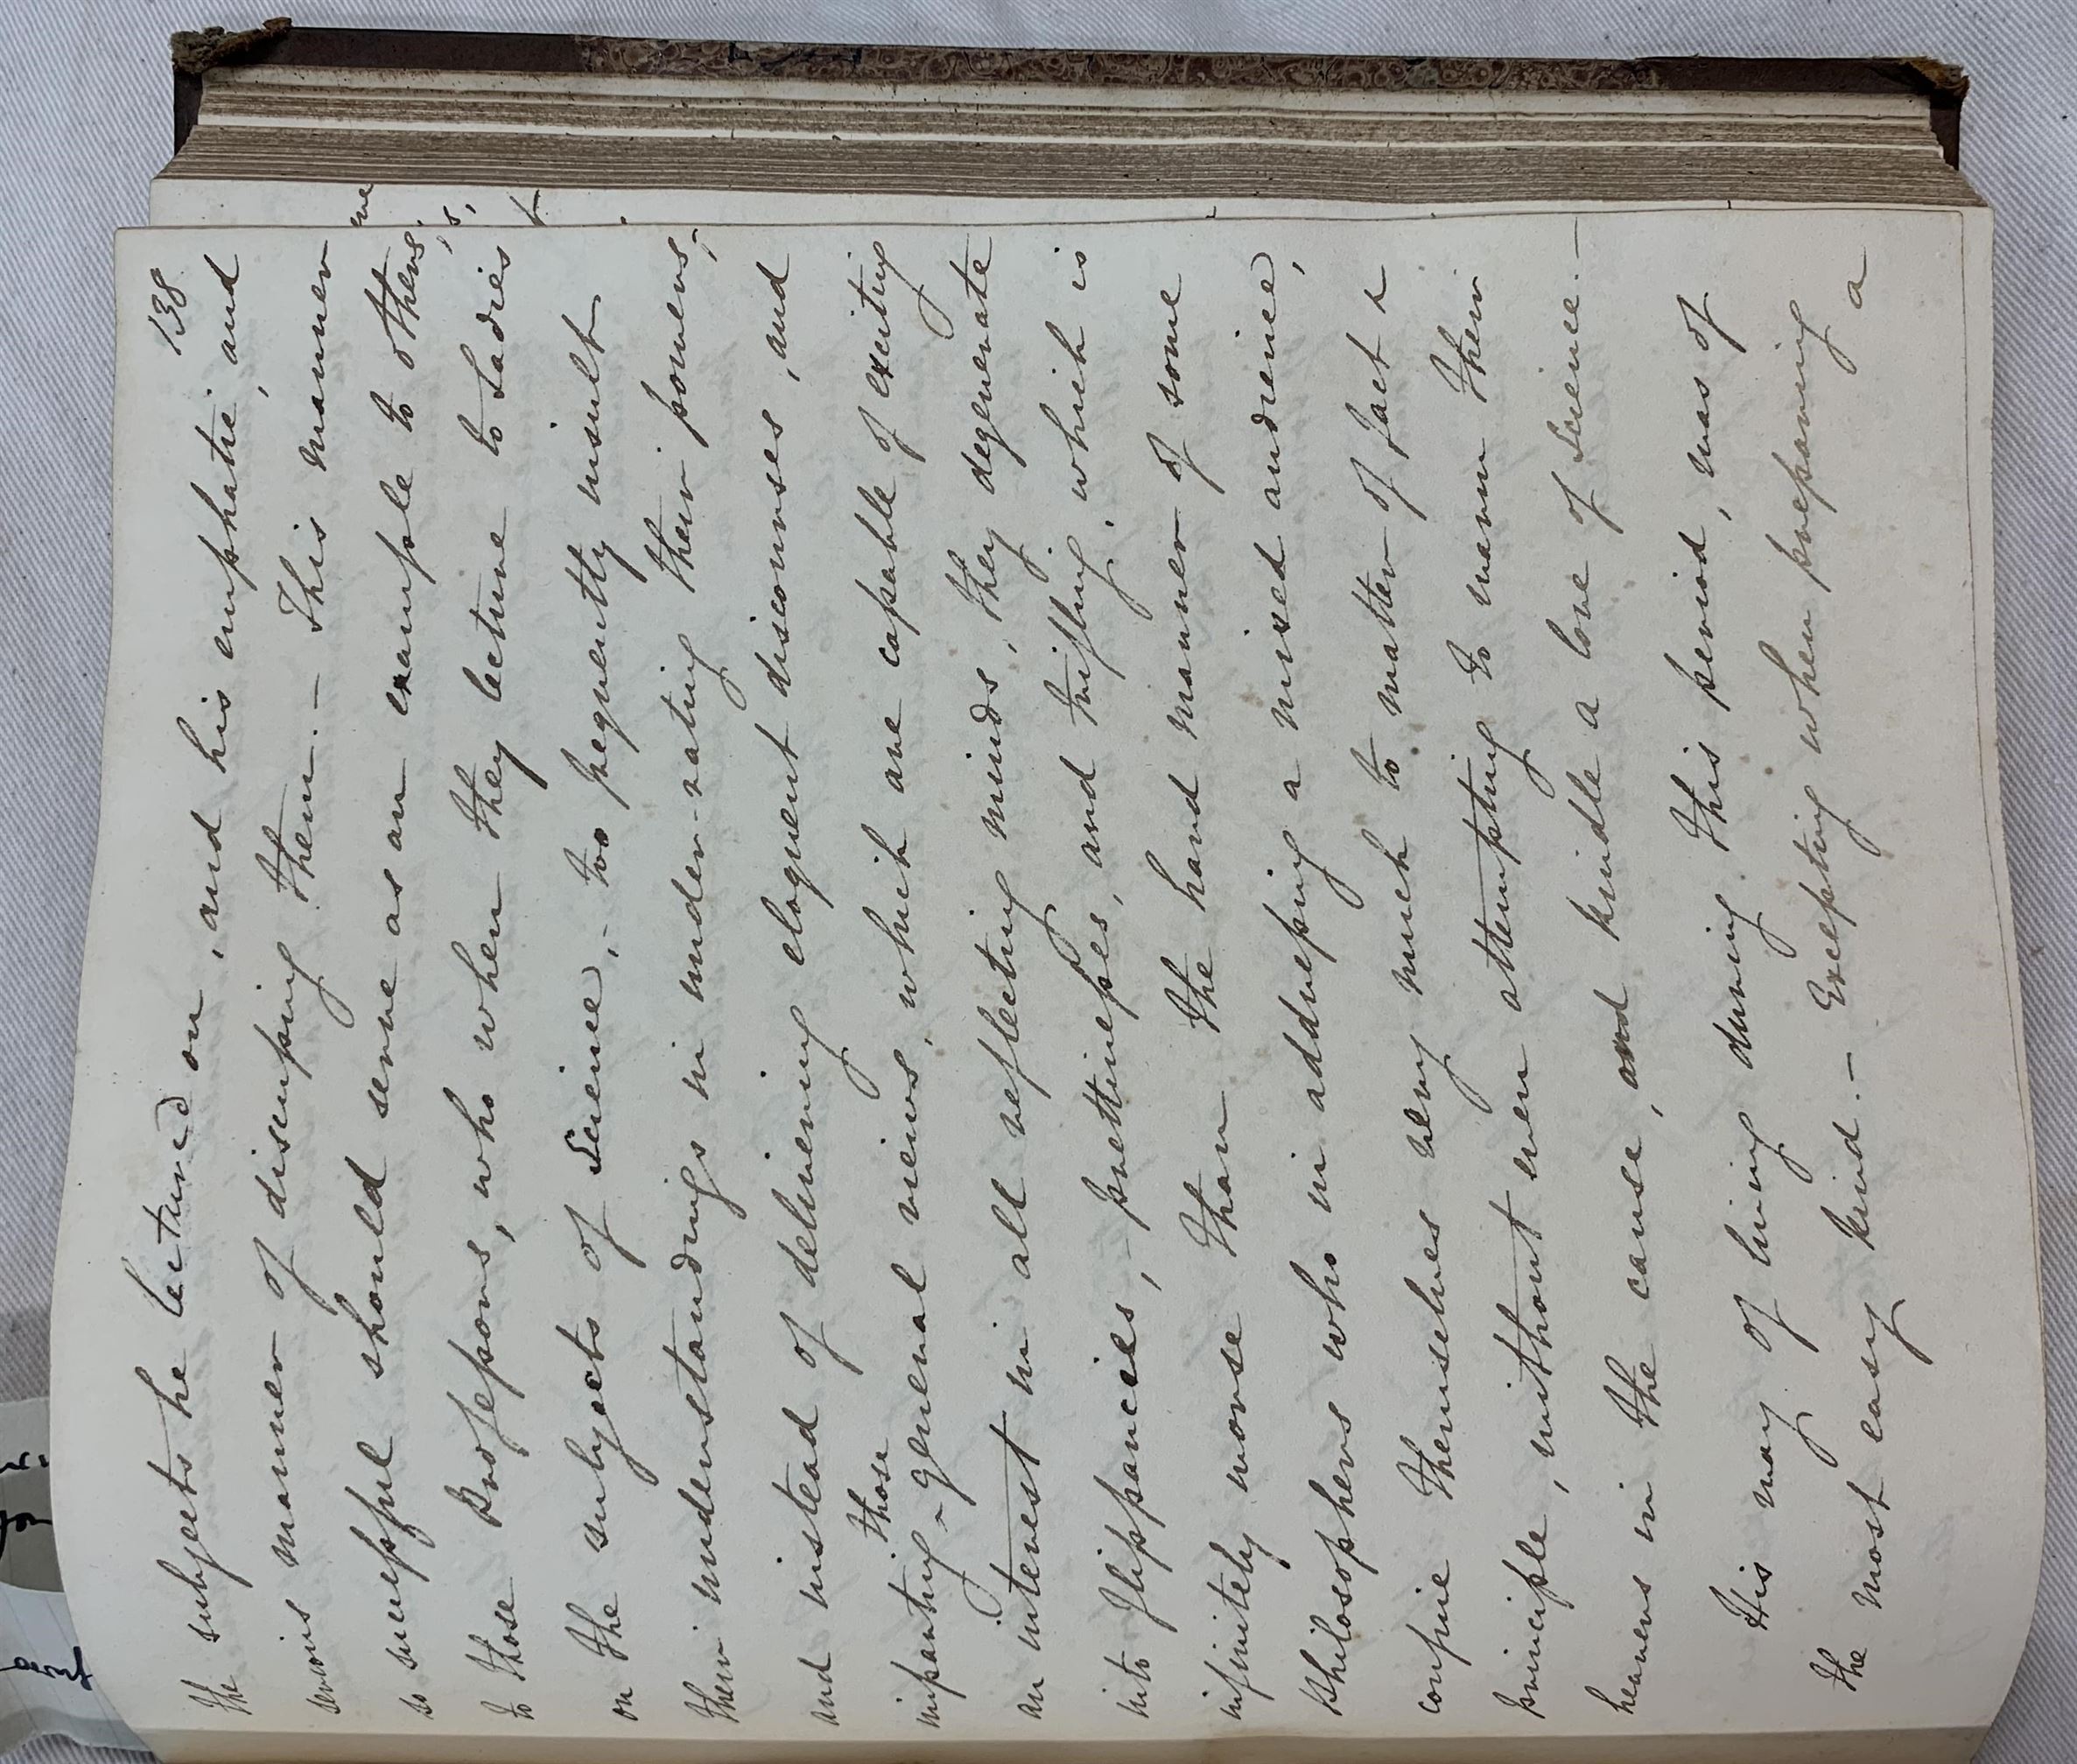 138
the subjects he lectured on, and his emphatic, and
serious manner of discussing them. – This manner
so successful should serve as an example to others;
to those Professors, who when they lecture to Ladies
on the subjects of Science, – too frequently insult
their understandings in under-rating their powers;
and instead of delivering eloquent discourses, and
those
imparting ^ general views, which are capable of exciting
an interest in all reflecting minds, they degenerate
into flippancies, – prettinesses, and trifling, which is
infinitely worse than the hard manner of some
Philosophers who in addressing a mixed audience,
confine themselves very much to matter of fact &
principle, without even attempting to warm their
hearers in the cause, and kindle a love of Science. –
His way of living during this period, was of
the most easy kind. – Excepting when preparing
a